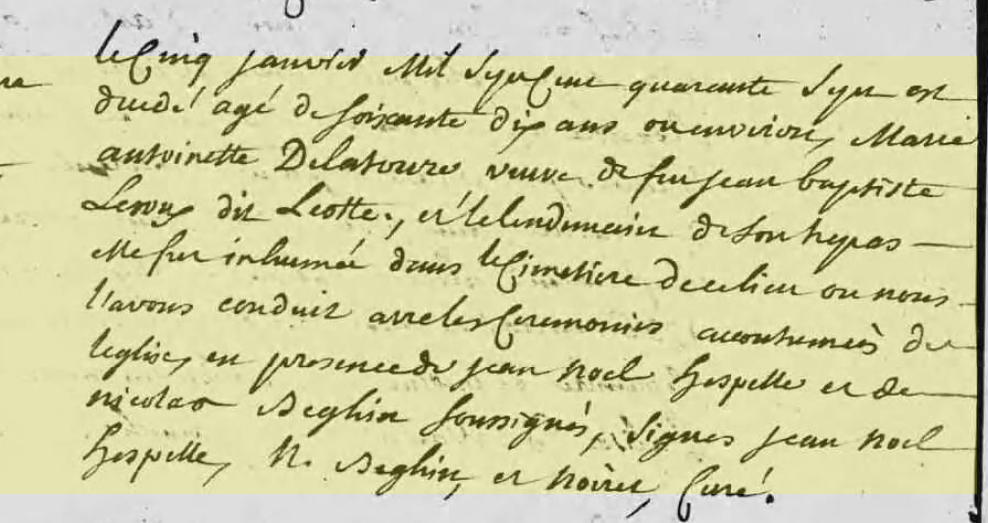 le Cinq janvier Mil Sept Cent quarante Sept est
decedé agé de soixante dix ans ou environ, Marie
antoinette Delatourre veuve de feu jean baptiste
Leroux dit Leotte, et le lendemain de son trepas
elle fut inhumée dans le Cimetiere de ce lieu ou nous
l'avons conduit avec les Ceremonies accoutumeés de
leglise, en presence de jean noel hespelle et de
nicolas Beghin soussignés, signes jean noel
hespelle, N. Beghin, et noiret, Curé.